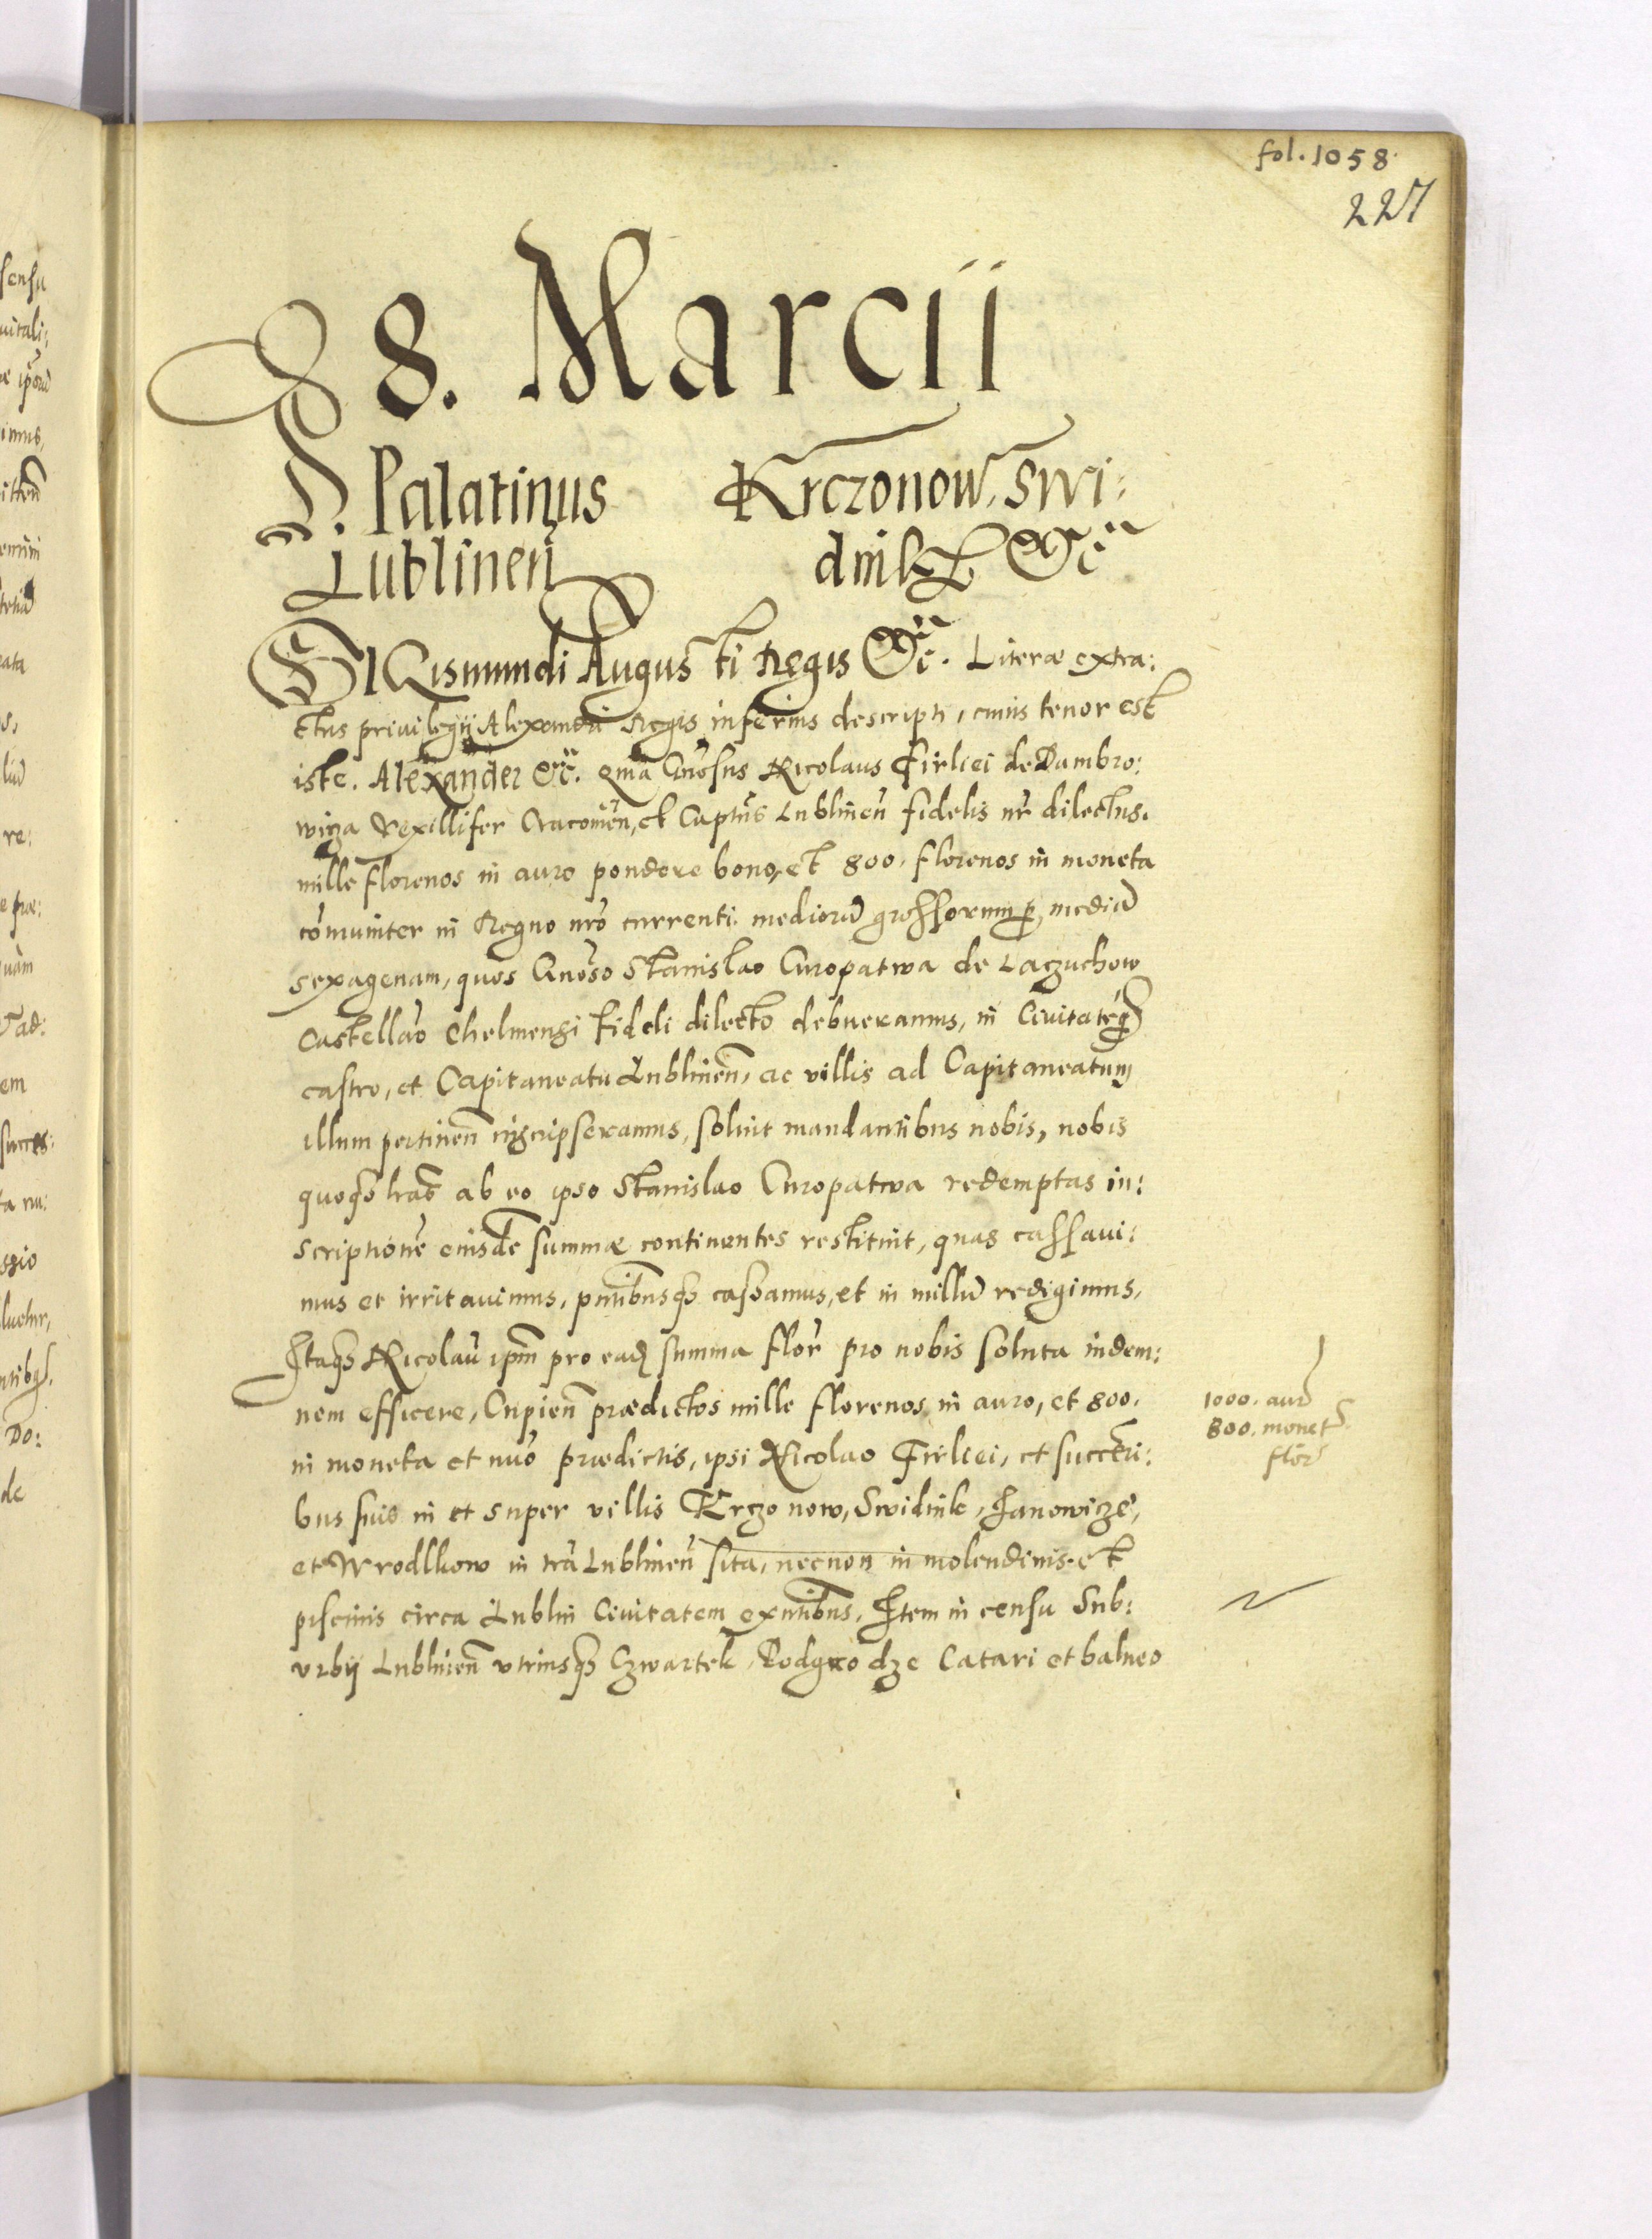 fol. 1058
227
8. Marcii
D. Palatinus
Lublinen̄
Krczonow, Swi:
dnik &c
SIGismundi Augusti Regis &c. Literæ extra:
ctus priuilegij Alexandri Regis inferius descripti, cuius tenor est
iste. Alexander &c. Quia Gn̄osus Nicolaus Firliei de Dambro:
wiza Vexillifer Cracouien̄, et Captn̄s Lublinen̄ fidelis nr̄ dilectus.
mille florenos in auro pondere bono, et 800. florenos in moneta
com̄uniter in Regno nr̄o currenti mediorū grossorum per mediā
sexagenam, quos Gn̄oso Stanislao Curopatwa de Laczuchow
Castellan̄o Chelmensi fideli dilecto debueramus, in Ciuitate
castro, et Capitaneatu Lublinen̄, ac villis ad Capitaneatum
illum pertinen̄ inscripseramus, soluit mandantibus nobis, nobis
quoqȝ lr̄as ab eo ipso Stanislao Curopatwa redemptas in:
scriptionē eiusdē summæ continentes restituit, quas cassaui:
mus et irritauimus, pn̄tibusqȝ cassamus, et in nillū redigimus,
Itaqȝ Nicolaū ipm̄ pro eadē summa flor̄ pro nobis soluta indem:
nem efficere, Cupien̄ prædictos mille florenos in auro, et 800.
in moneta et nūo prædictis, ipsi Nicolao Firliei, et succ̄ri:
bus suis in et super villis Krczonow, Swidnik, Janowicze,
et Wrodlkow in tr̄a Lublinen̄ sita, necnon in molendinis et
piscinis circa Lublin Ciuitatem exn̄tibus, Item in censu Sub:
vrbij Lublinen̄ vtriusqȝ Czwartek, Podgrodze Catari et balneo
1000. aur̄
800. monet
flor̄